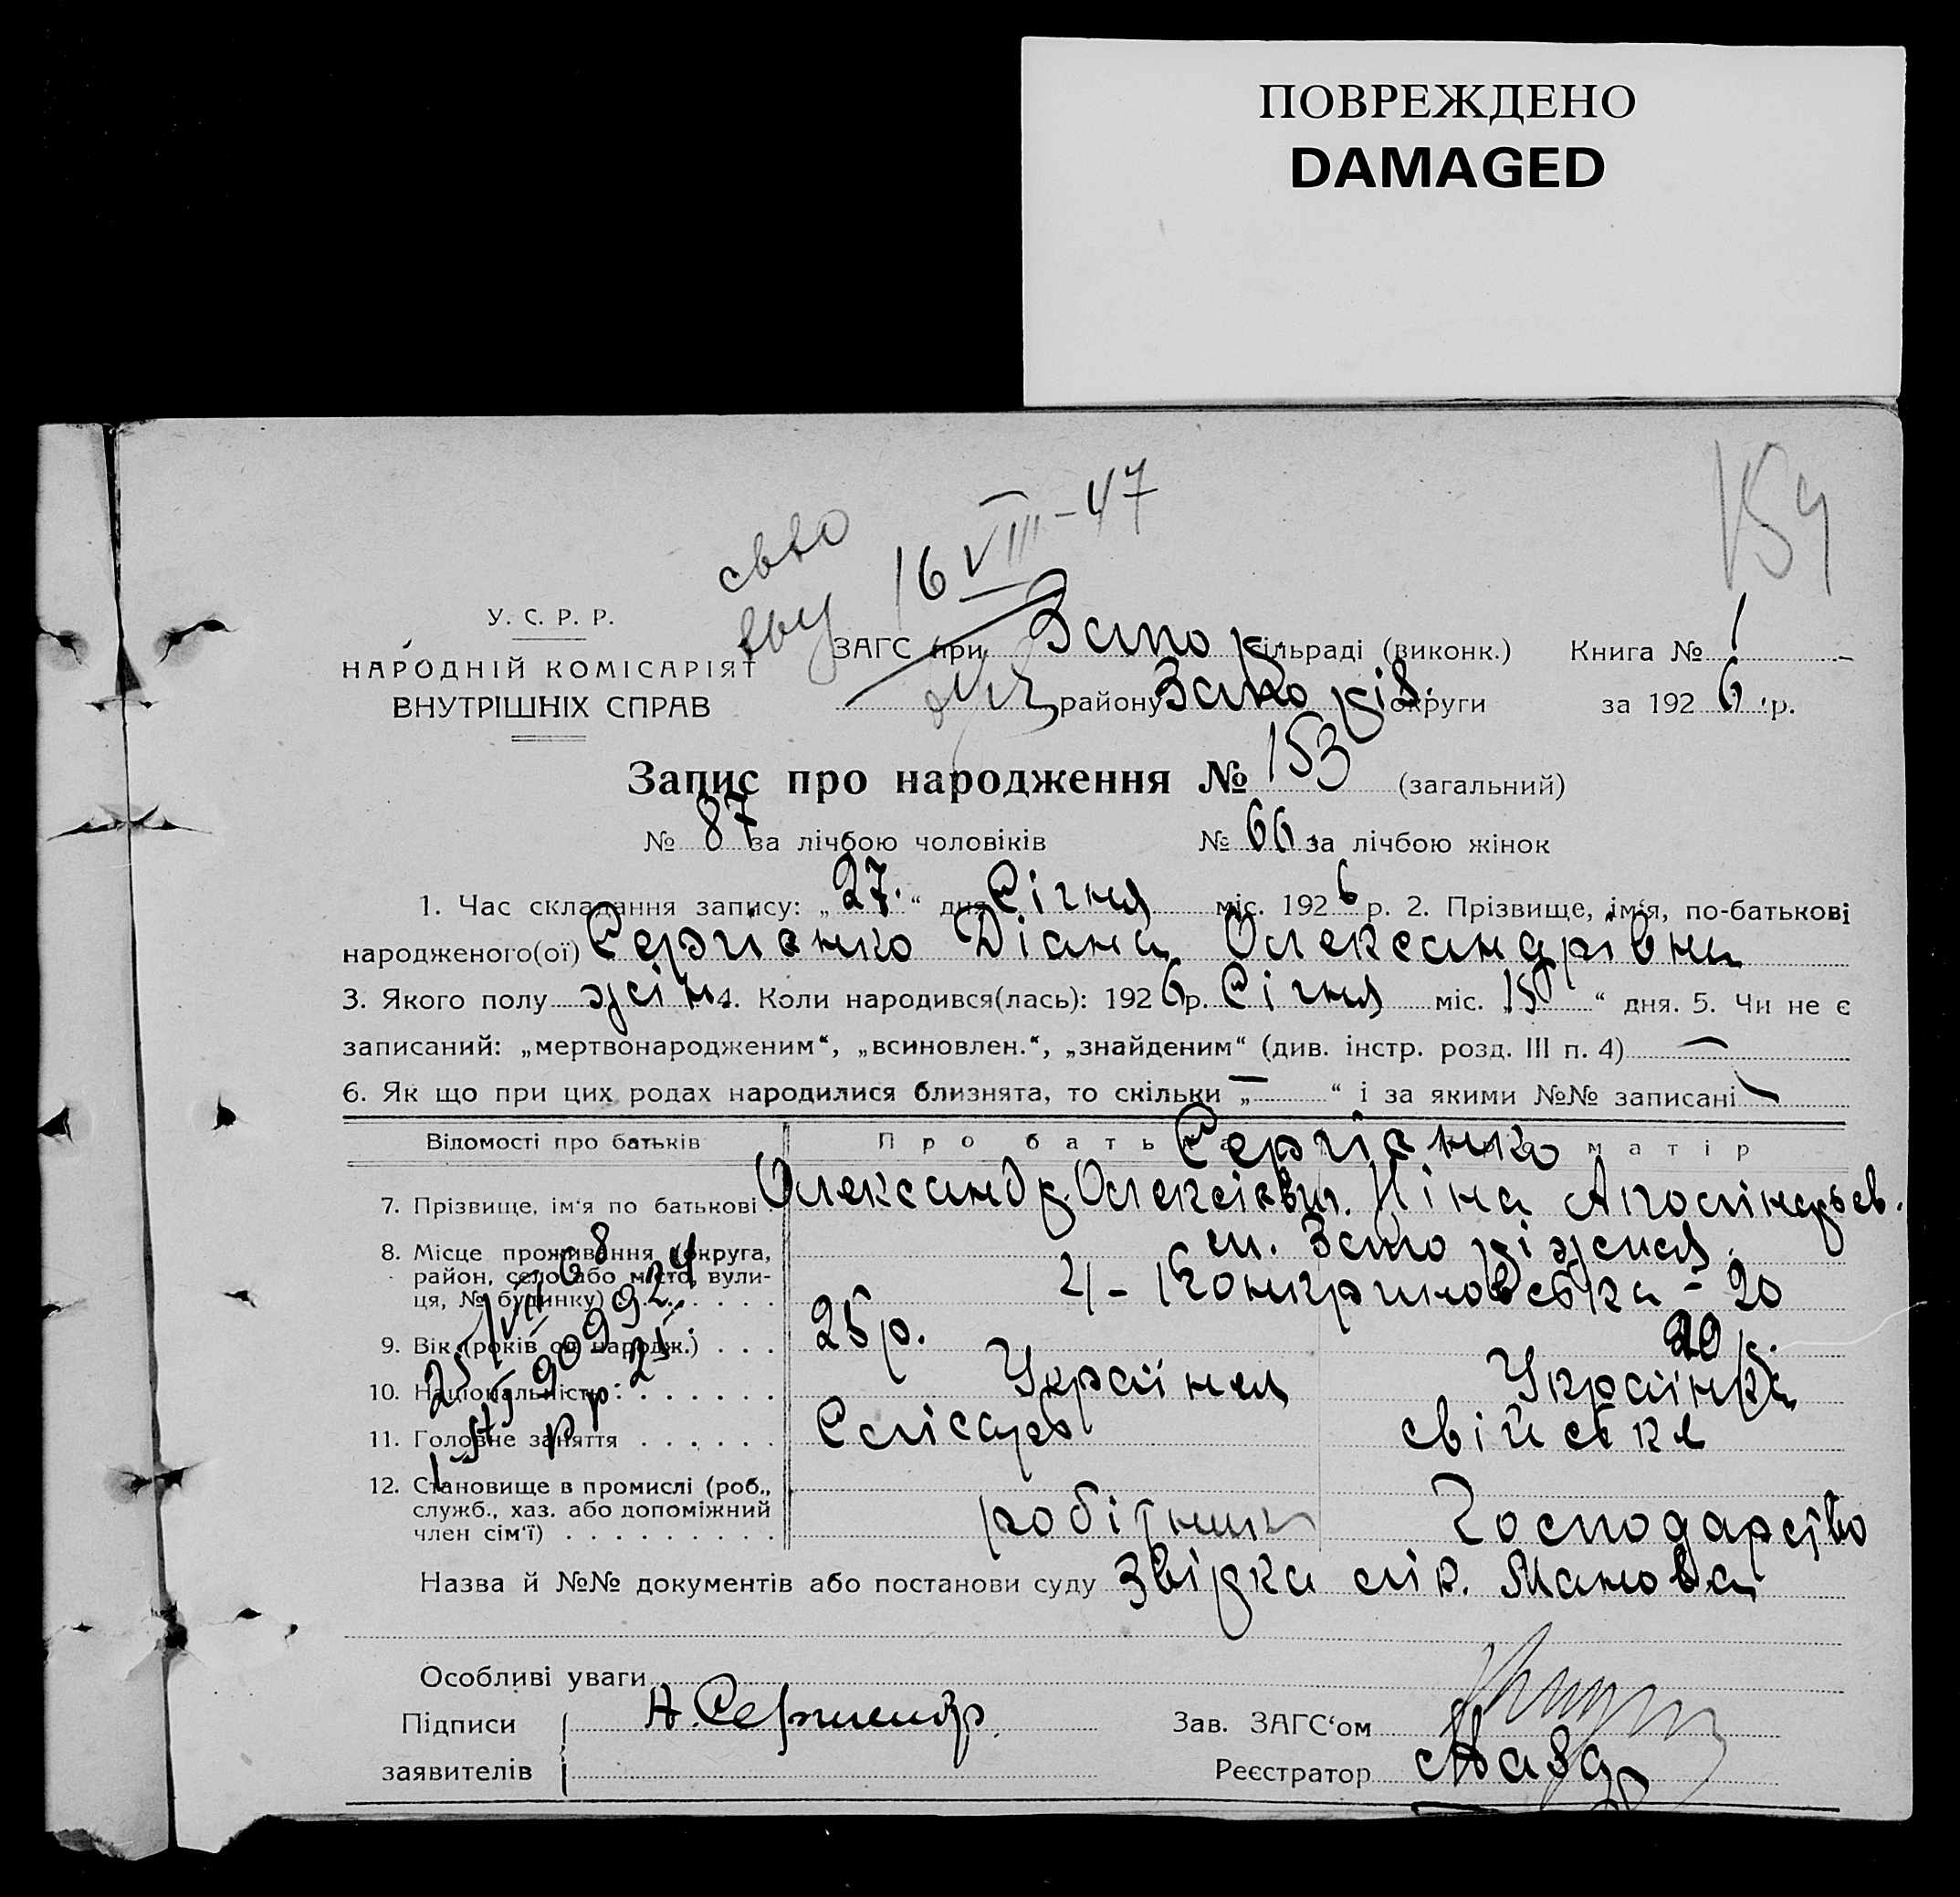 ПОВРЕЖДЕНО
DAMAGED
154
16 VIII-47
У. С. Р. Р.
НАРОДНІЙ КОМІСАРІЯТ
ВНУТРІШНІХ СПРАВ
ЗАГС при Запор сільраді (виконк.) Книга № 1
району Запоріз. округи за 1926 р.
Запис про народження № 153 (загальний)
№ 87 за лічбою чоловіків № 66 за лічбою жінок
1. Час складання запису: „27." дня Січня міс. 1926 р. 2. Прізвище, ім'я, по-батькові
народженого(ої) Сергієнко Діана Олександрівна
3. Якого полу жін. 4. Коли народився(лась): 1926 р. Січня міс. „15" дня. 5. Чи не є
записаний: „мертвонародженим", „всиновлен.", „знайденим" (див. інстр. розд. III п. 4) —
6. Як що при цих родах народилися близнята, то скільки „—" і за якими №№ записані —
Відомості про батьків Про батька Сергієнко матір
7. Прізвище, ім'я по батькові Олександр Олексієвич. Ніна Аполінарьєв.
8. Місце проживання (округа, район, село або місто, вулиця, № будинку) м. Запоріжжя,
4- -20
9. Вік (років од народж.) 25 р. 20 р.
10. Національність Українец Українка
11. Головне заняття Слісарь свійське
12. Становище в промислі (роб., служб., хаз. або допоміжний член сім'ї) робітник Господарство
Назва й №№ документів або постанови суду Звідка лік. Манова
Особливі уваги
Підписи А. Сергиенко Зав. ЗАГС'ом
заявителів Реєстратор